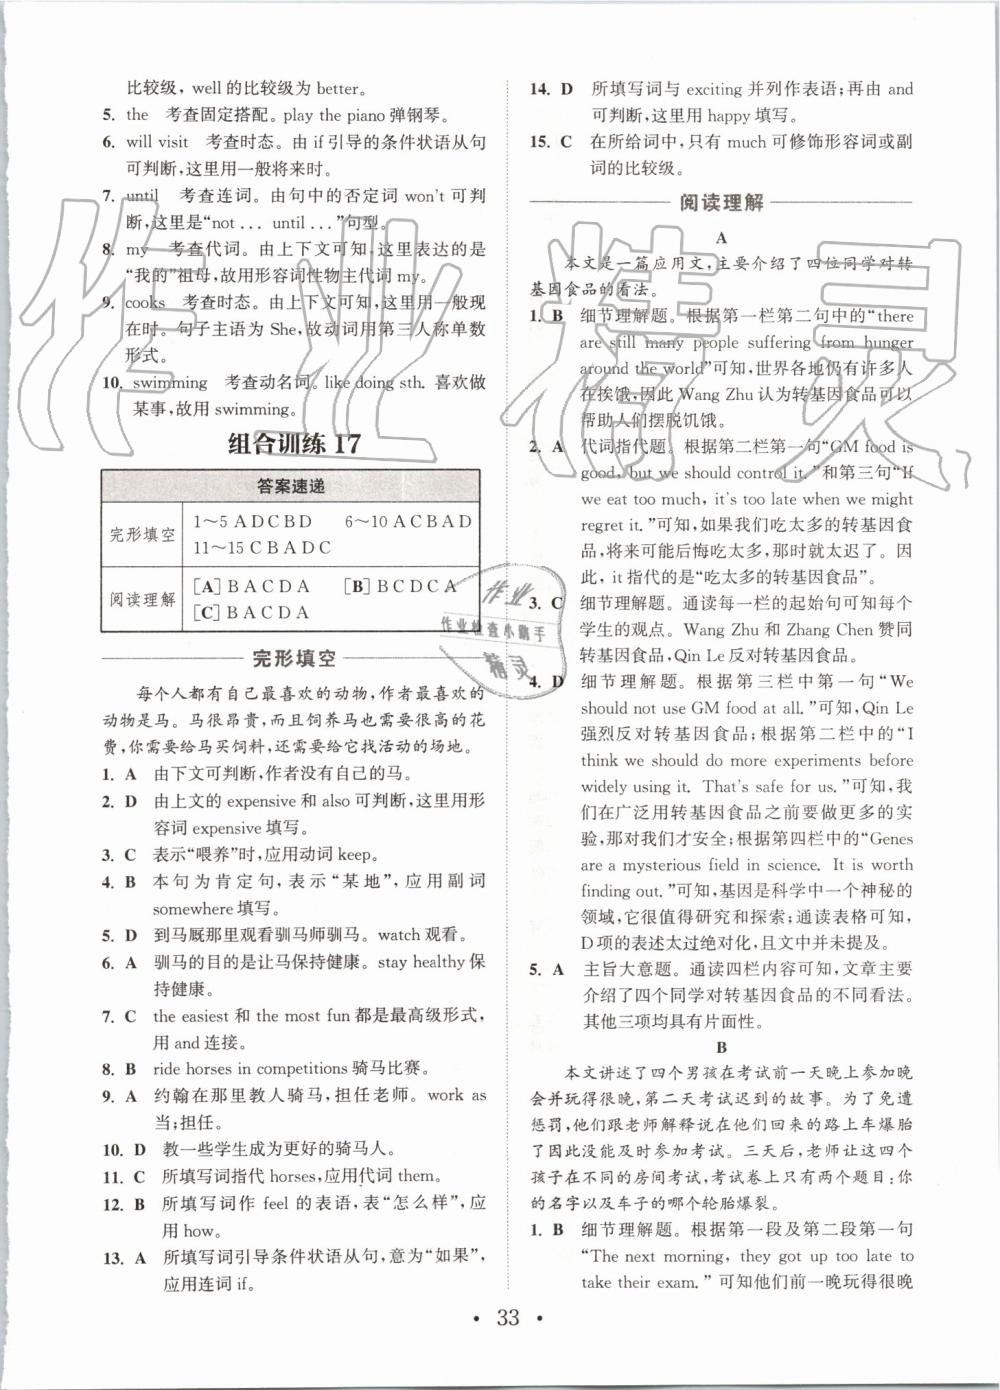 比较级, well 的比较级为 better。
5. the 考查固定搭配。play the piano 弹钢琴。
6. will visit 考查时态。由 if 引导的条件状语从句
可判断,这里用一般将来时。
7. until 考查连词。由句中的否定词 won't 可判
断,这里是“not ... until ...”句型。
8. my 考查代词。由上下文可知,这里表达的是
“我的”祖母,故用形容词性物主代词 my。
9. cooks 考查时态。由上下文可知,这里用一般现
在时。句子主语为 She,故动词用第三人称单数
形式。
10. swimming 考查动名词。like doing sth. 喜欢做
某事,故用 swimming。
组合训练 17
答案速递
完形填空
1～5 A D C B D 6～10 A C B A D
11～15 C B A D C
阅读理解
[A] B A C D A [B] B C D C A
[C] B A C D A
完形填空
每个人都有自己最喜欢的动物,作者最喜欢的
动物是马。马很昂贵,而且饲养马也需要很高的花
费,你需要给马买饲料,还需要给它找活动的场地。
1. A 由下文可判断,作者没有自己的马。
2. D 由上文的 expensive 和 also 可判断,这里用形
容词 expensive 填写。
3. C 表示“喂养”时,应用动词 keep。
4. B 本句为肯定句,表示“某地”,应用副词
somewhere 填写。
5. D 到马厩那里观看驯马师驯马。watch 观看。
6. A 驯马的目的是让马保持健康。stay healthy 保
持健康。
7. C the easiest 和 the most fun 都是最高级形式,
用 and 连接。
8. B ride horses in competitions 骑马比赛。
9. A 约翰在那里教人骑马,担任老师。work as
当;担任。
10. D 教一些学生成为更好的骑马人。
11. C 所填写词指代 horses,应用代词 them。
12. B 所填写词作 feel 的表语,表“怎么样”,应
用 how。
13. A 所填写词引导条件状语从句,意为“如果”,
应用连词 if。
14. D 所填写词与 exciting 并列作表语;再由 and
可判断,这里用 happy 填写。
15. C 在所给词中,只有 much 可修饰形容词或副
词的比较级。
阅读理解
A
本文是一篇应用文,主要介绍了四位同学对转
基因食品的看法。
1. B 细节理解题。根据第一栏第二句中的“there
are still many people suffering from hunger
around the world”可知,世界各地仍有许多人
在挨饿,因此 Wang Zhu 认为转基因食品可以
帮助人们摆脱饥饿。
2. A 代词指代题。根据第二栏第一句“GM food is
good, but we should control it.”和第三句“If
we eat too much, it's too late when we might
regret it.”可知,如果我们吃太多的转基因食
品,将来可能后悔吃太多,那时就太迟了。因
此,it 指代的是“吃太多的转基因食品”。
3. C 细节理解题。通读每一栏的起始句可知每个
学生的观点。Wang Zhu 和 Zhang Chen 赞同
转基因食品,Qin Le 反对转基因食品。
4. D 细节理解题。根据第三栏中第一句“We
should not use GM food at all.”可知,Qin Le
强烈反对转基因食品;根据第二栏中的“I
think we should do more experiments before
widely using it. That's safe for us.”可知,我
们在广泛用转基因食品之前要做更多的实
验,那对我们才安全;根据第四栏中的“Genes
are a mysterious field in science. It is worth
finding out.”可知,基因是科学中一个神秘的
领域,它很值得研究和探索;通读表格可知,
D 项的表述太过绝对化,且文中并未提及。
5. A 主旨大意题。通读四栏内容可知,文章主要
介绍了四个同学对转基因食品的不同看法。
其他三项均具有片面性。
B
本文讲述了四个男孩在考试前一天晚上参加晚
会并玩得很晚,第二天考试迟到的故事。为了免遭
惩罚,他们跟老师解释说在他们回来的路上车爆胎
了因此没能及时参加考试。三天后,老师让这四个
孩子在不同的房间考试,考试卷上只有两个题目:你
的名字以及车子的哪个轮胎爆裂。
1. B 细节理解题。根据第一段及第二段第一句
“The next morning, they got up too late to
take their exam.”可知他们前一晚玩得很晚
• 33 •
作业精灵
作业
作业检查小助手
精灵